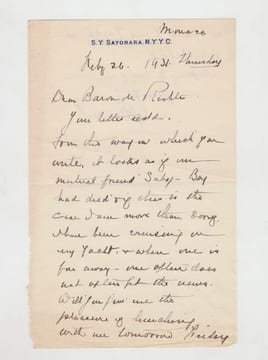 Monaco
S.Y. SAYONARA. N.Y.Y.C.
Feby 26. 1931. Thursday
Dear Baron de
Your letter recd.
From the way in which you
write, it looks as if our
mutual friend Bey
had died & if this is the
case I am more than sorry.
Have been cruising in
my Yacht, & when one is
far away - one often does
not get the news.
Will you give me the
pleasure of lunching
with me tomorrow Friday